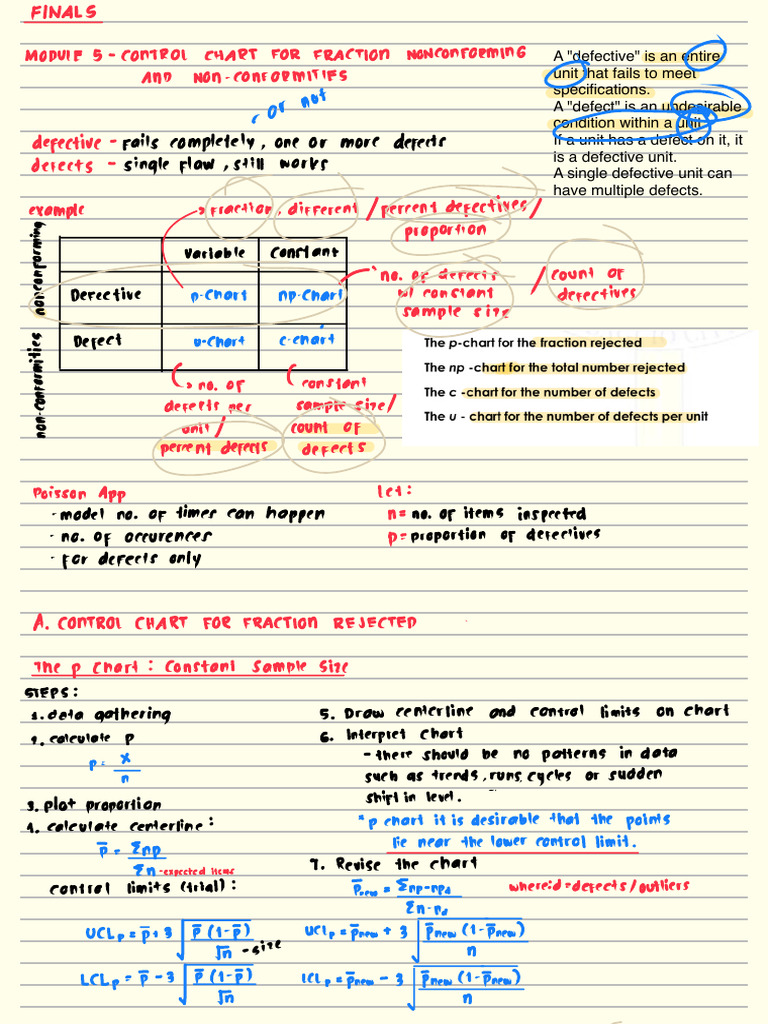 FINALS
MODULE 5 - CONTROL CHART FOR FRACTION NONCONFORMING
AND NON-CONFORMITIES
A "defective" is an entire
unit that fails to meet
specifications.
A "defect" is an undesirable
condition within a unit.
If a unit has a defect on it, it
is a defective unit.
A single defective unit can
have multiple defects.
or not
defective - fails completely, one or more defects
defects - single flaw, still works
example
fraction, different / percent defectives /
proportion
nonconforming
non-conformities
Variable Constant
Defective p-chart np-chart
Defect u-chart c-chart
no. of defects / count of
w/ constant defectives
sample size
no. of
defects per
unit /
percent defects
constant
sample size /
count of
defects
The p-chart for the fraction rejected
The np -chart for the total number rejected
The c -chart for the number of defects
The u - chart for the number of defects per unit
Poisson App
- model no. of times can happen
- no. of occurences
- for defects only
let:
n = no. of items inspected
p = proportion of defectives
A. CONTROL CHART FOR FRACTION REJECTED
The p Chart : Constant Sample Size
STEPS:
1. data gathering
2. calculate p
p = x/n
3. plot proportion
4. calculate centerline:
p̄ = Σnp / Σn - expected items
control limits (trial):
UCLp = p̄ + 3 √(p̄ (1-p̄) / √n) - size
LCLp = p̄ - 3 √(p̄ (1-p̄) / √n)
5. Draw centerline and control limits on chart
6. Interpret Chart
- there should be no patterns in data
such as trends, runs, cycles or sudden
shift in level.
* p chart it is desirable that the points
lie near the lower control limit.
7. Revise the chart
p̄new = Σnp - npd / Σn - nd where: d = defects / outliers
UCLp = p̄new + 3 √(p̄new (1-p̄new) / n)
LCLp = p̄new - 3 √(p̄new (1-p̄new) / n)